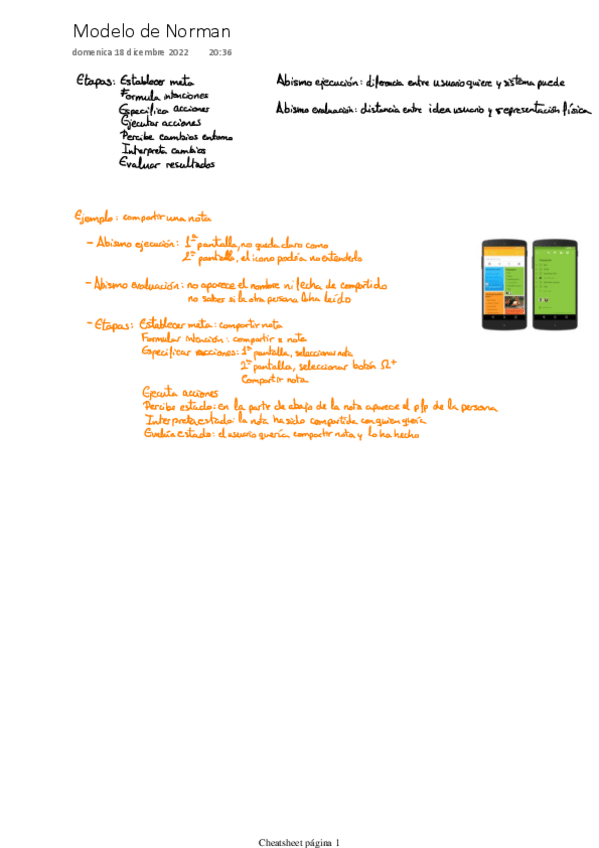 Modelo de Norman
domenica 18 dicembre 2022 20:36
Etapas: Establecer meta
Formula intenciones
Especifica acciones
Ejecutar acciones
Percibe cambios entorno
Interpreta cambios
Evaluar resultados
Abismo ejecución: diferencia entre usuario quiere y sistema puede
Abismo evaluación: distancia entre idea usuario y representación física
Ejemplo: compartir una nota
- Abismo ejecución: 1ª pantalla, no queda claro como
2ª pantalla, el icono podría no entenderlo
- Abismo evaluación: no aparece el nombre ni fecha de compartido
no saber si la otra persona la ha leído
- Etapas: Establecer meta: compartir nota
Formular intención: compartir x nota
Especificar acciones: 1ª pantalla, seleccionar nota
2ª pantalla, seleccionar botón
Compartir nota
Ejecuta acciones
Percibe estado: en la parte de abajo de la nota aparece el pfp de la persona
Interpreta estado: la nota ha sido compartida con quien quería
Evalúa estado: el usuario quería compartir nota y lo ha hecho
Cheatsheet página 1